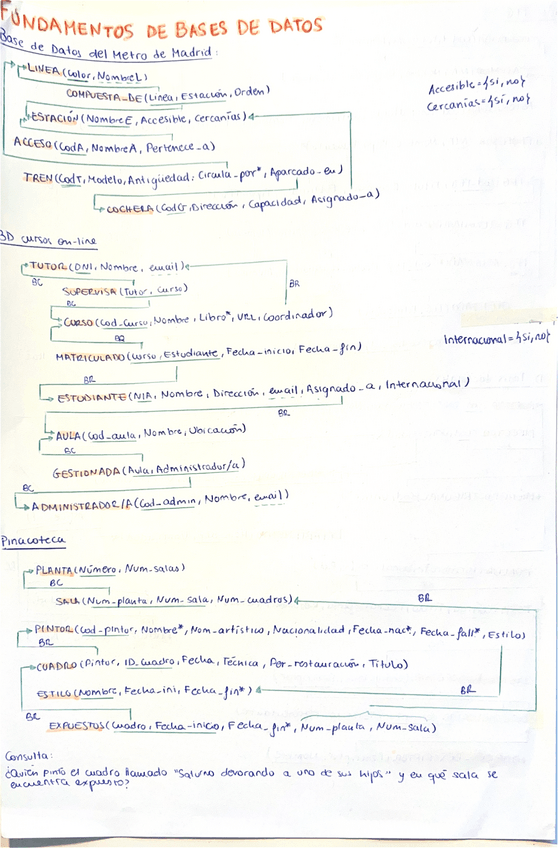 FUNDAMENTOS DE BASES DE DATOS
Base de Datos del Metro de Madrid:
LINEA (Color, NombreL)
Accesible = {si, no}
COMPUESTA_DE (Línea, Estación, Orden)
Cercanías = {si, no}
ESTACIÓN (NombreE, Accesible, Cercanías)
ACCESO (CodA, NombreA, Pertenece_a)
TREN (CodT, Modelo, Antigüedad, Circula_por*, Aparcado_en)
COCHERA (CodC, Dirección, Capacidad, Asignado_a)
BD cursos on-line
TUTOR (DNI, Nombre, email)
BC
BR
SUPERVISA (Tutor, Curso)
BC
CURSO (Cod_curso, Nombre, Libro*, URL, Coordinador)
Internacional = {si, no}
MATRICULADO (Curso, Estudiante, Fecha_inicio, Fecha_fin)
BR
ESTUDIANTE (NIA, Nombre, Dirección, email, Asignado_a, Internacional)
BR
AULA (Cod_aula, Nombre, Ubicación)
BC
GESTIONADA (Aula, Administrador/a)
BC
ADMINISTRADOR/A (Cod_admin, Nombre, email)
Pinacoteca
PLANTA (Número, Num_salas)
BC
BR
SALA (Num_planta, Num_sala, Num_cuadros)
PINTOR (Cod_pintor, Nombre*, Nom_artístico, Nacionalidad, Fecha_nac*, Fecha_fall*, Estilo)
BR
CUADRO (Pintor, ID_cuadro, Fecha, Técnica, Per_restauración, Titulo)
BR
ESTILO (Nombre, Fecha_ini, Fecha_fin*)
BC
EXPUESTOS (Cuadro, Fecha_inicio, Fecha_fin*, Num_planta, Num_sala)
Consulta:
¿Quién pintó el cuadro llamado "Saturno devorando a uno de sus hijos" y en qué sala se
encuentra expuesto?